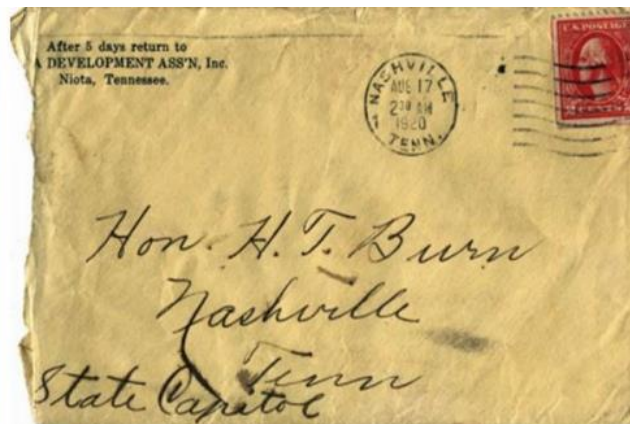 After 5 days return to
A DEVELOPMENT ASS'N, Inc.
Niota, Tennessee.
NASHVILLE
AUG 17
2 30 AM
1920
TENN.
U.S. POSTAGE
2 CENTS 2
Hon. H. T. Burn
Nashville
Tenn
State Capitol